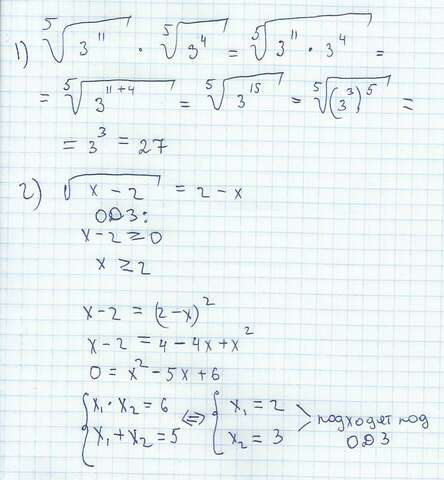 1) ⁵√(3¹¹) · ⁵√(3⁴) = ⁵√(3¹¹ · 3⁴) =
= ⁵√(3¹¹⁺⁴) = ⁵√(3¹⁵) = ⁵√((3³)⁵) =
= 3³ = 27
2) √(x - 2) = 2 - x
ОДЗ:
x - 2 ≥ 0
x ≥ 2
x - 2 = (2 - x)²
x - 2 = 4 - 4x + x²
0 = x² - 5x + 6
{ x₁ · x₂ = 6 ⇔ { x₁ = 2 > подходят под
{ x₁ + x₂ = 5 { x₂ = 3 ОДЗ